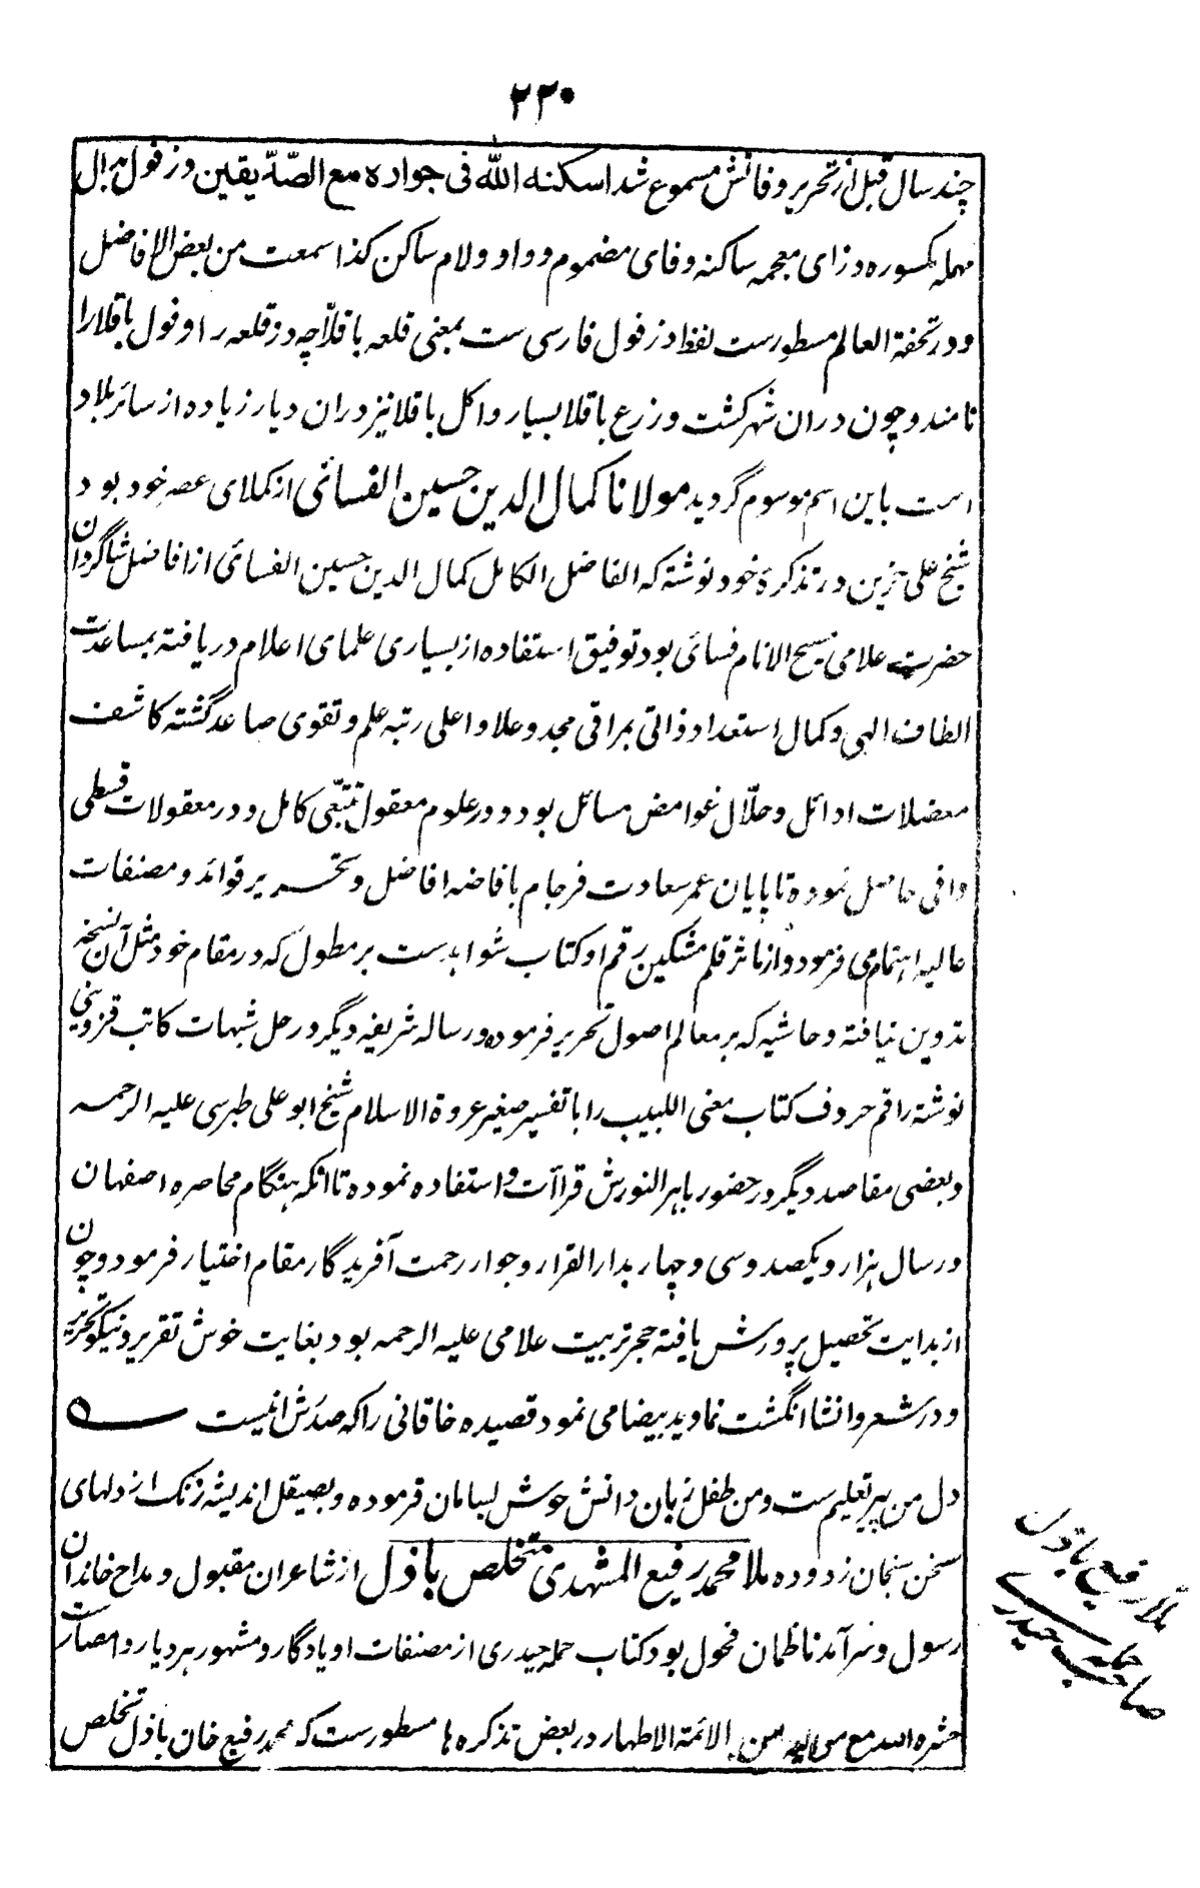 ۲۳۰
چند سال قبل از تحریر وفاتش مسموع شد اسکنه الله فی جواره مع الصّدّیقین و زفول بدال
مهمله مکسوره و زای معجمه ساکنه و فای مضموم و واو و لام ساکن کذا سمعت من بعض الافاضل
و در تحفة العالم مسطورست لفظ دزفول فارسی ست بمعنی قلعه باقلاّ چه دز قلعه را و فول باقلا را
نامند و چون دران شهر کشت و زرع باقلا بسیار و اکل باقلا نیز دران دیار زیاده از سائر بلاد
است باین اسم موسوم گردید مولانا کمال الدین حسین الفسائی از کملای عصر خود بود
شیخ علی حزین در تذکرهٔ خود نوشته که الفاضل الکامل کمال الدین حسین الفسائی از افاضل شاگردان
حضرت علامی مسیح الانام فسائی بود توفیق استفاده از بسیاری علمای اعلام دریافته بمساعدت
الطاف الهی و کمال استعداد ذاتی بمراقی مجد و علا و اعلی رتبه علم و تقوی صاعد گشته کاشف
معضلات اوائل و حلّال غوامض مسائل بود و در علوم معقول تتبّعی کامل و در معقولات قسطی
وافی حاصل نموده تا پایان عمر سعادت فرجام بافاضه افاضل و تحریر فوائد و مصنفات
عالیه اهتمام می فرمود و از مآثر قلم مشکین رقم او کتاب شواهدست بر مطول که در مقام خود مثل آن نسخه
تدوین نیافته و حاشیه که بر معالم اصول تحریر فرموده و رساله شریفه دیگر در حل شبهات کاتب قزوینی
نوشته راقم حروف کتاب مغنی اللبیب را با تفسیر صغیر عروة الاسلام شیخ ابو علی طبرسی علیه الرحمه
و بعضی مقاصد دیگر در حضور باهر النورش قراآت و استفاده نموده تا آنکه هنگام محاصره اصفهان
در سال هزار و یکصد و سی و چهار بدار القرار و جوار رحمت آفریدگار مقام اختیار فرمود و چون
از بدایت تحصیل پرورش یافته حجر تربیت علامی علیه الرحمه بود بغایت خوش تقریر و نیکو تحریر
و در شعر و انشا انگشت نما و ید بیضا می نمود قصیده خاقانی را که صدرش اینست
دل من پیر تعلیم ست و من طفل زبان دانش خوش لسامان فرموده و بصیقل اندیشه زنگ از دلهای
سخن سنجان زدوده ملا محمد رفیع المشهدی متخلص باذل از شاعران مقبول و مداح خاندان
رسول و سرآمد ناظمان فحول بود کتاب حمله حیدری از مصنفات او یادگار و مشهور هر دیار و امصارست
حشره الله مع موالیه من الائمة الاطهار در بعض تذکره ها مسطورست که محمد رفیع خان باذل تخلص
ملا رفیع باذل
صاحب حمله حیدری